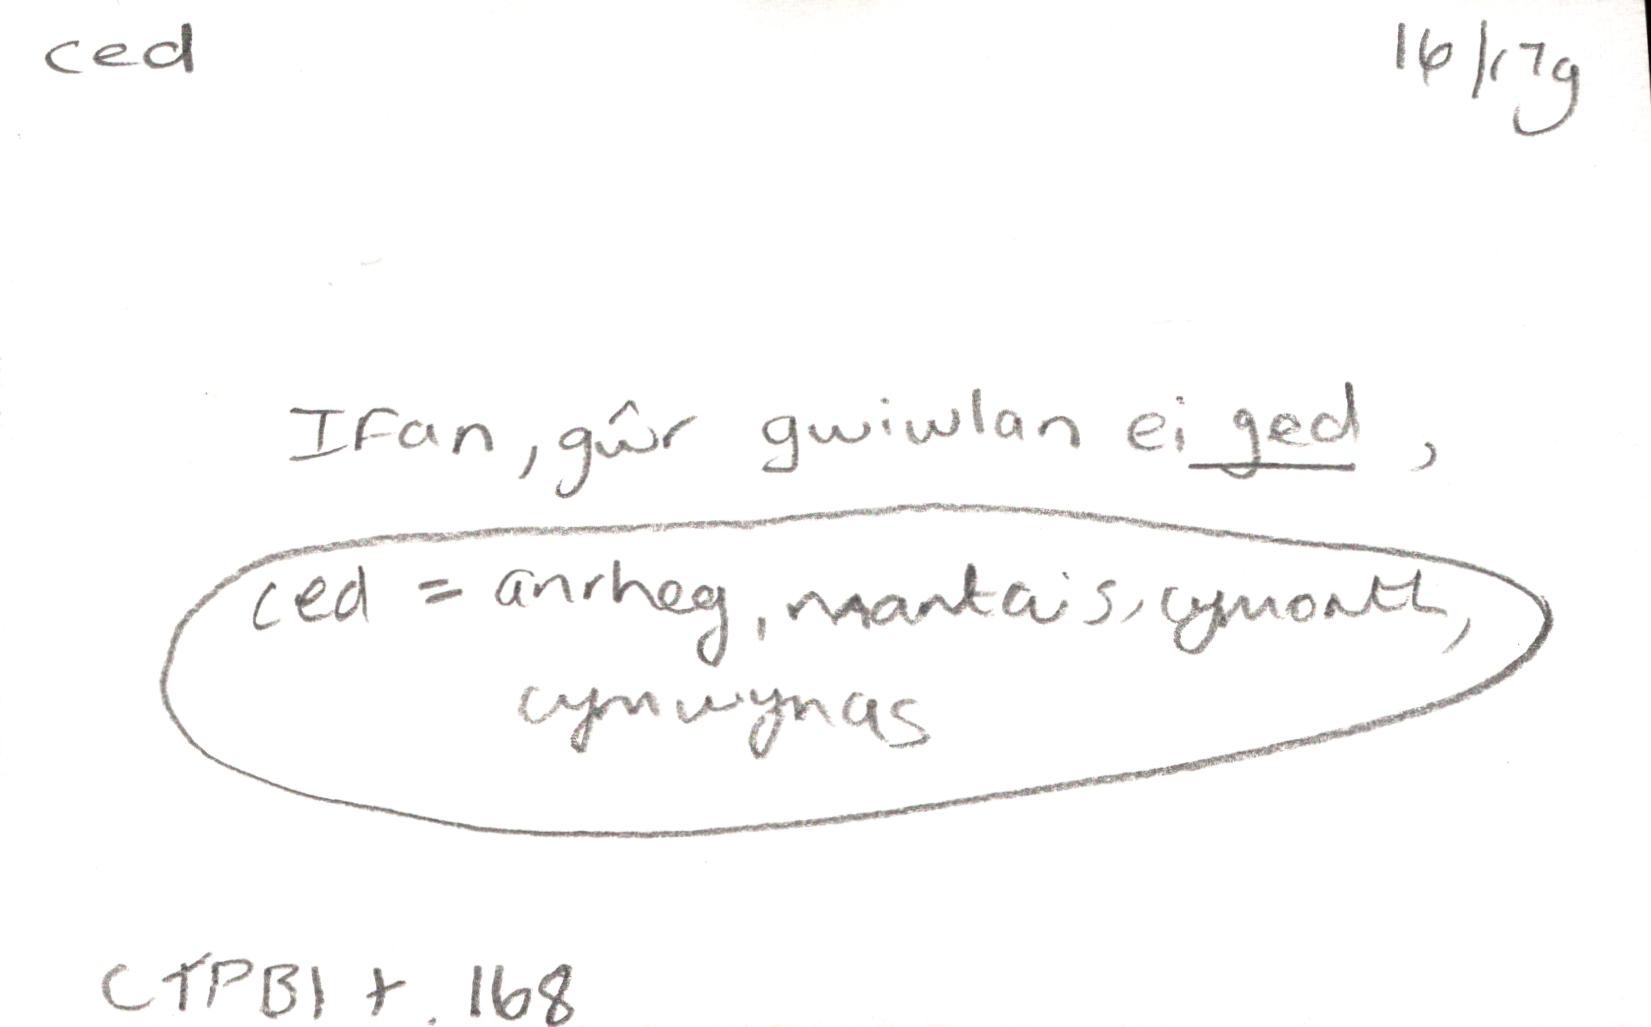 ced 16/17g
Ifan, gŵr gwiwlan ei ged,
ced = anrheg, mantais, cymorth,
cymwynas
CTPB1 t. 168